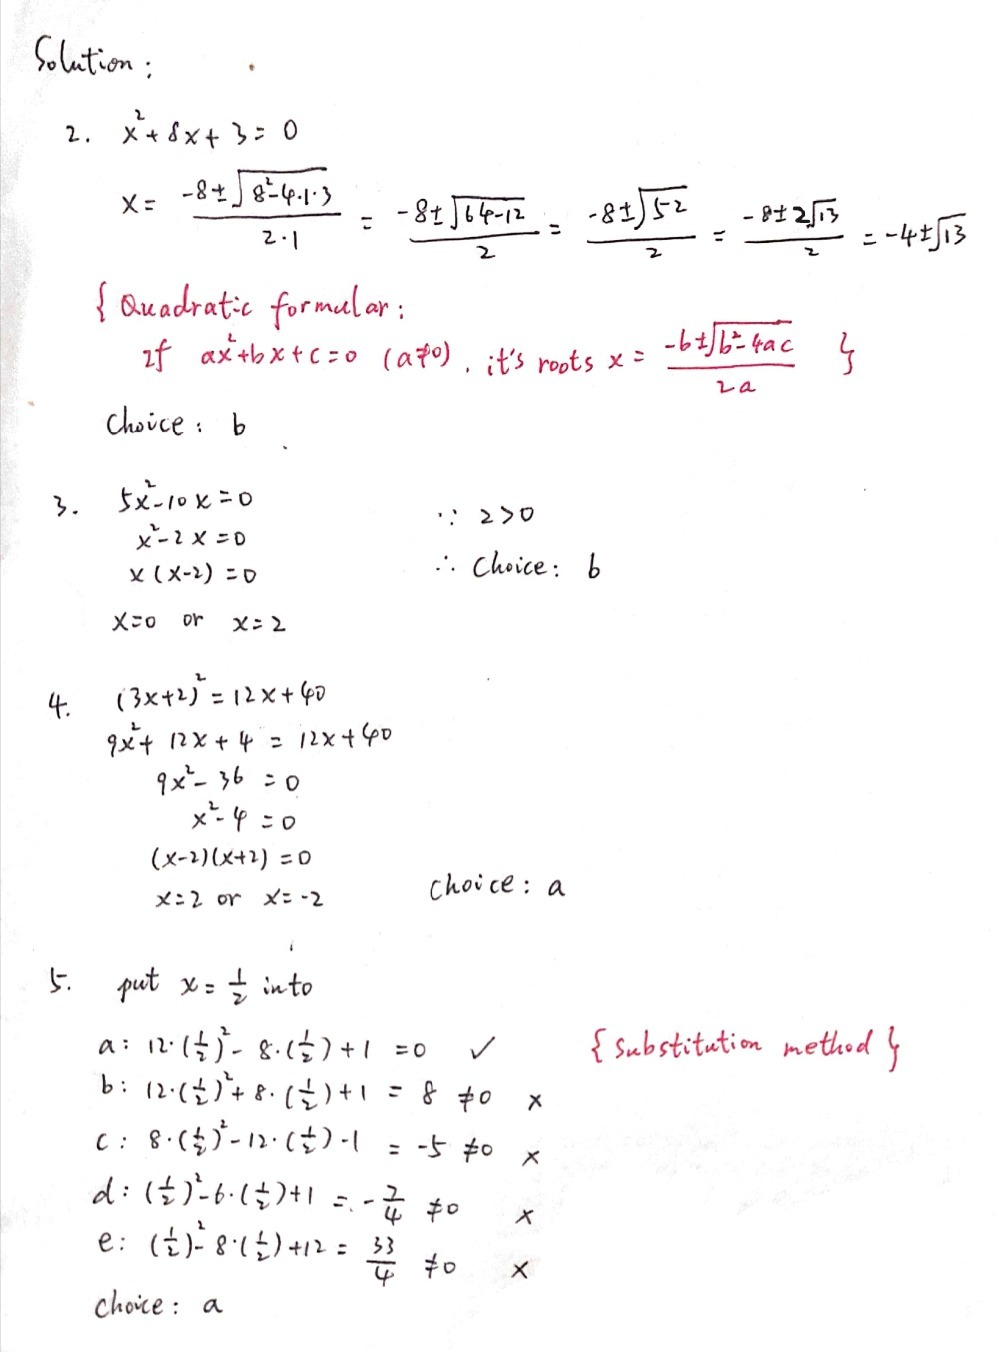 Solution:
2. x²+8x+3=0
x= (-8±√(8²-4·1·3))/(2·1) = (-8±√(64-12))/2 = (-8±√52)/2 = (-8±2√13)/2 = -4±√13
{ Quadratic formular:
If ax²+bx+c=0 (a≠0), it's roots x= (-b±√(b²-4ac))/(2a) }
Choice: b
3. 5x²-10x=0
x²-2x=0
x(x-2)=0
x=0 or x=2
∵ 2>0
∴ Choice: b
4. (3x+2)²=12x+40
9x²+12x+4=12x+40
9x²-36=0
x²-4=0
(x-2)(x+2)=0
x=2 or x=-2
Choice: a
5. put x=1/2 into
a: 12·(1/2)²-8·(1/2)+1=0 ✓
{substitution method}
b: 12·(1/2)²+8·(1/2)+1=8≠0 ×
c: 8·(1/2)²-12·(1/2)-1=-5≠0 ×
d: (1/2)²-6·(1/2)+1=-7/4≠0 ×
e: (1/2)²-8·(1/2)+12=33/4≠0 ×
choice: a